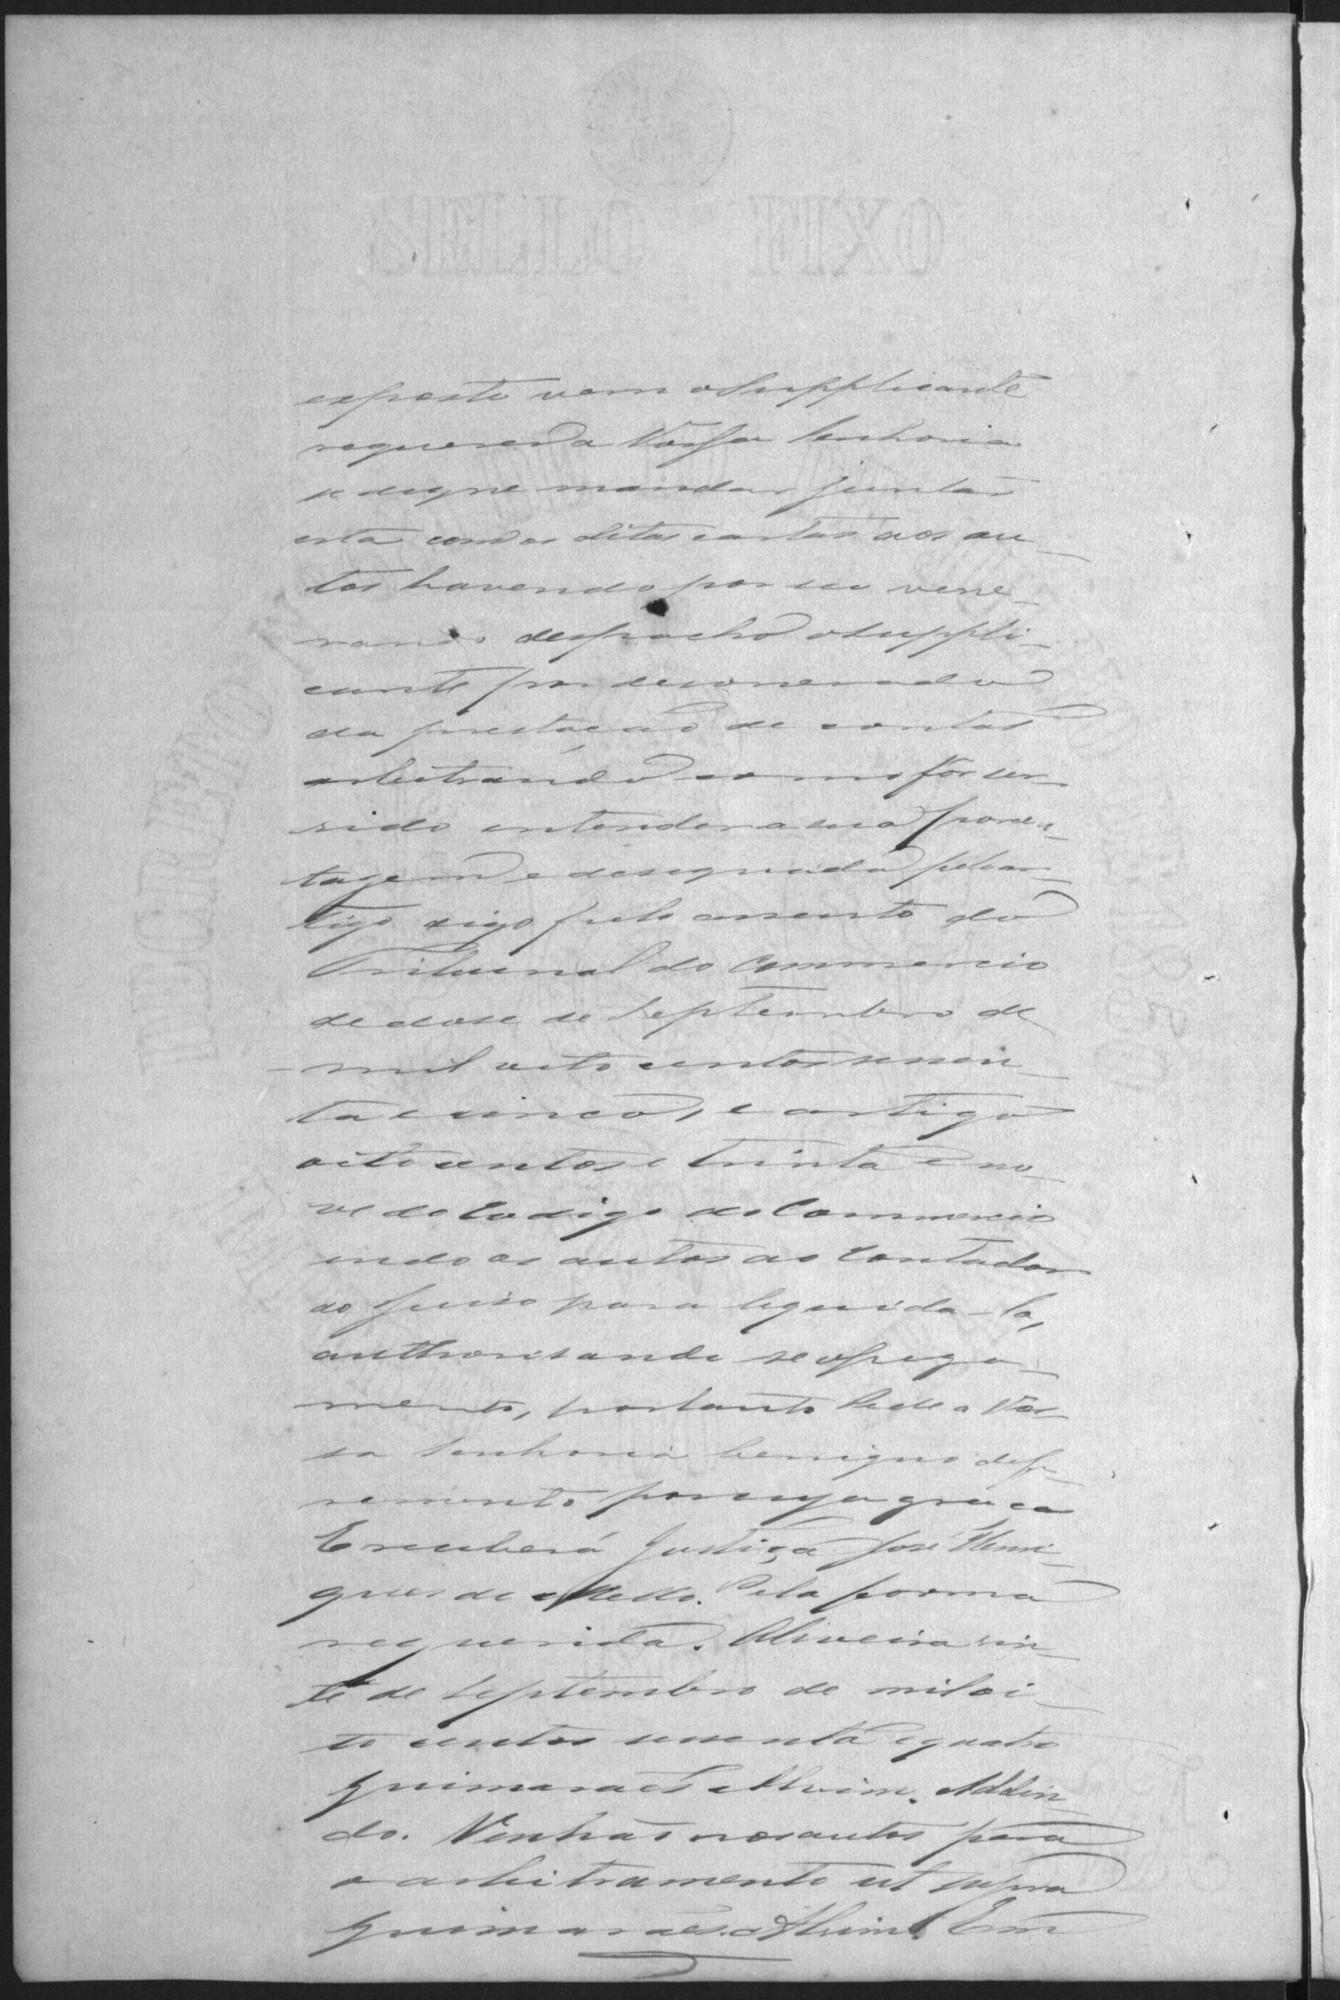 exposto vem o Supplicante
requerer a Vossa Senhoria
se digne mandar juntar
esta com as ditas cartas aos au-
tos havendo por seu vene-
rando despacho o suppli-
cante por desonerado
da prestação de contas
arbitrando como for ser-
vido entender a sua porcen-
tagem e designada pelo ar-
tigo digo pelo assento do
Tribunal do Commercio
de dose de Septembro de
mil oito centos sessen-
ta e cinco, e artigo
oito centos e trinta e no-
ve do Codigo do Commercio
indo os autos ao Contador
do Juiso para liquida-la,
authorisando se o paga-
mento, portanto Pede a Vos-
sa Senhoria benigno defe-
rimento por cuja graça
E receberá Justiça José Henri-
ques de Mello. Pela forma
requerida. Oliveira vin-
te de Septembro de mil oi-
to centos sessenta e quatro
Guimarães Alvim. Addin-
do. Venhão nos autos para
o arbitramento ut supra
Guimarães Alvim. Em